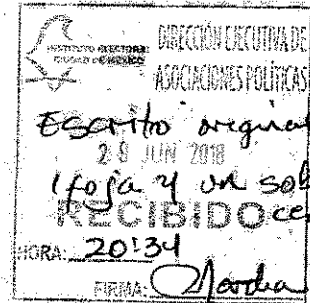 INSTITUTO ELECTORAL
CIUDAD DE MÉXICO
DIRECCIÓN EJECUTIVA DE
ASOCIACIONES POLÍTICAS
Escrito original
28 JUN 2018
1 foja y un sob
RECIBIDO ce
HORA: 20:34
FIRMA: